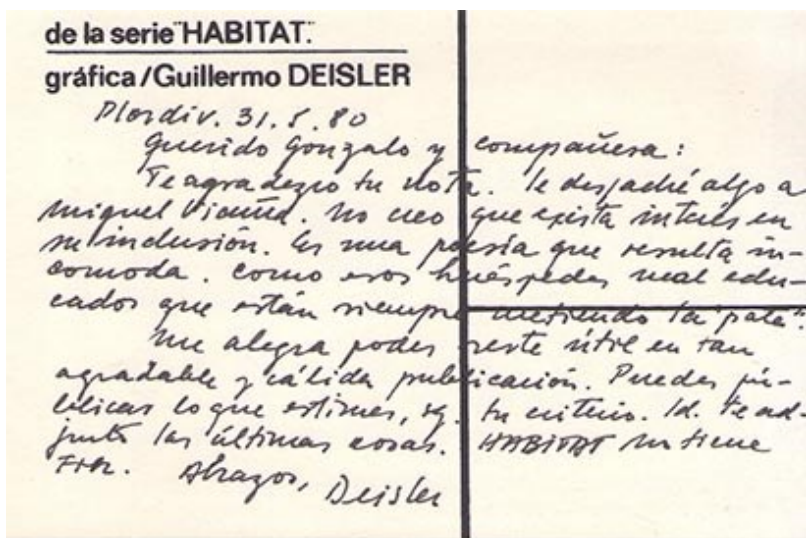 de la serie "HABITAT".
gráfica/Guillermo DEISLER
Plovdiv. 31. 5. 80
Querido Gonzalo y compañera:
Te agradezco tu nota. le despaché algo a
Miguel Vicuña. No creo que exista interés en
su inclusión. Es una poesía que resulta in-
comoda. como esos huéspedes mal edu-
cados que están siempre metiendo la "pata".
Me alegra poder serte útil en tan
agradable y cálida publicación. Puedes pú-
blicar lo que estimes, sg. tu criterio. Id. te ad-
junto las últimas cosas. HABITAT no tiene
Abrazos, Deisler